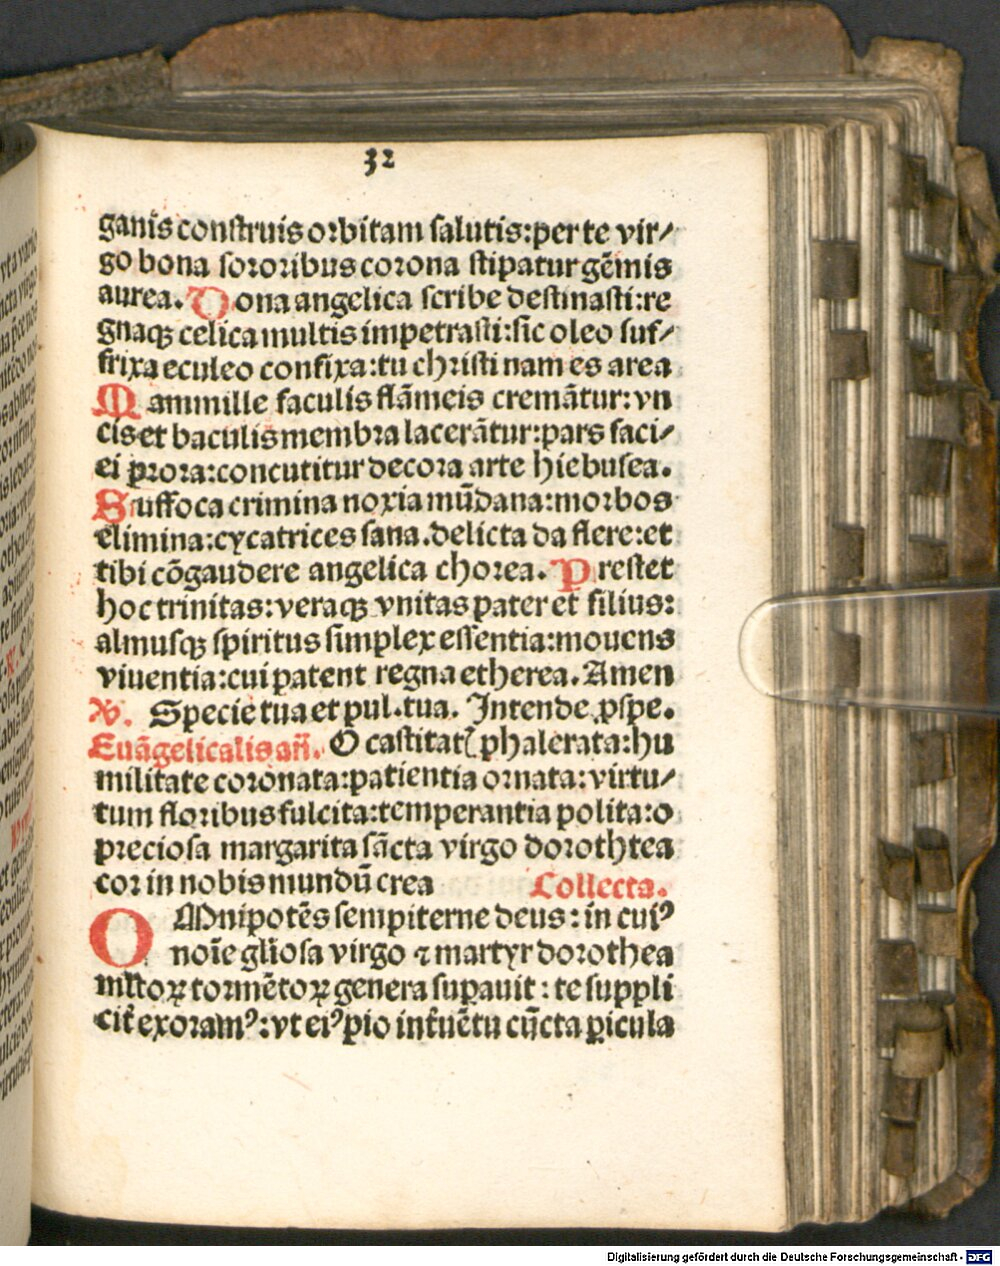 32
ganis construis orbitam salutis: per te vir/
go bona sororibus corona stipatur gēmis
aurea. Dona angelica scribe destinasti: re
gnaqꝫ celica multis impetrasti: sic oleo suf/
frixa eculeo confixa: tu christi nam es area
Mammille faculis flāmeis cremātur: vn
cis et baculis membra lacerātur: pars faci/
ei ꝓrora: concutitur decora arte hiebusea.
Suffoca crimina noxia mūdana: morbos
elimina: cycatrices sana. delicta da flere: et
tibi cōgaudere angelica chorea. Prestet
hoc trinitas: veraqꝫ vnitas pater et filius:
almusqꝫ spiritus simplex essentia: mouens
viuentia: cui patent regna etherea. Amen
℣. Specie tua et pul. tua. Intende ꝓspe.
Euāgelicalis añ. O castitatꝭ phalerata: hu
militate coronata: patientia ornata: virtu/
tum floribus fulcita: temperantia polita: o
preciosa margarita sācta virgo dorothea
cor in nobis mundū crea Collecta.
OMnipotēs sempiterne deus: in cuiꝰ
noīe gliosa virgo ⁊ martyr dorothea
mltoꝝ tormētoꝝ genera supauit: te suppli
cit̄ exoramꝰ: vt eiꝰ pio intuētu cūcta ꝑicula
Digitalisierung gefördert durch die Deutsche Forschungsgemeinschaft - DFG